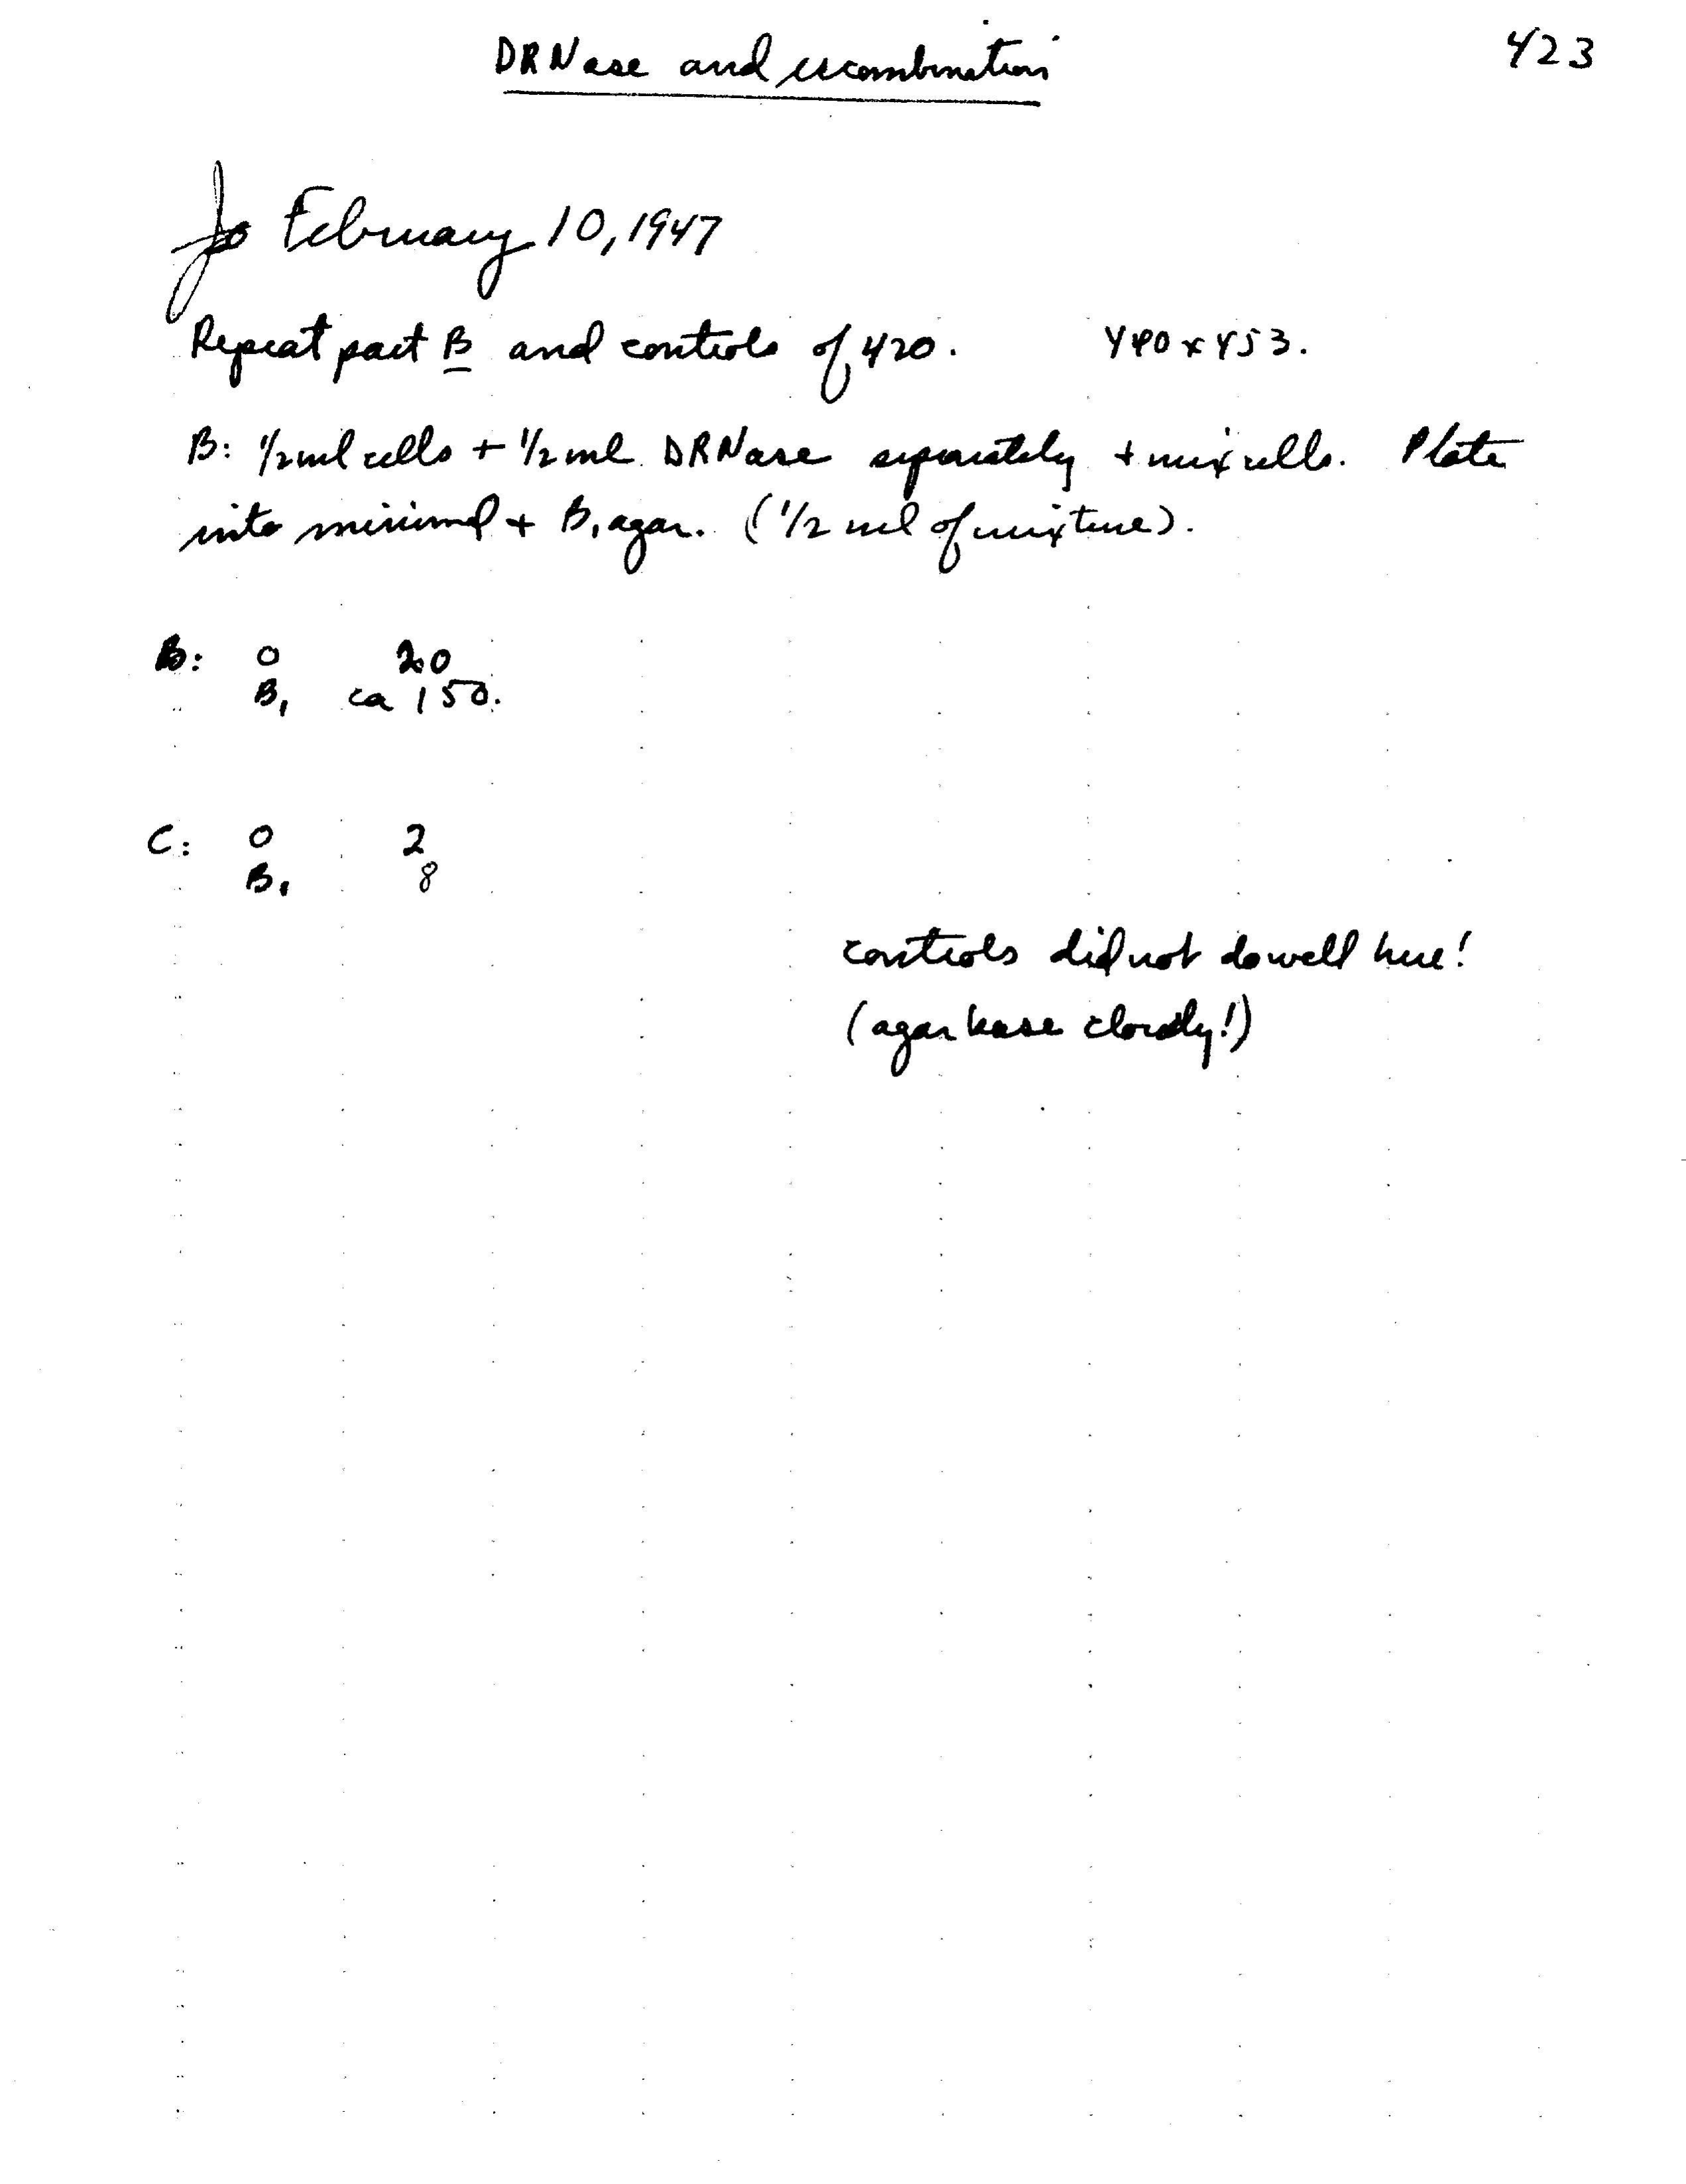 DRNase and recombination 423
February 10, 1947
Repeat part B and controls of 420. Y40 x Y53.
B: 1/2 ml cells + 1/2 ml DRNase separately + mix cells. Plate
into minimal + B1 agar. (1/2 ml of mixture).
B: 0 20
B1 ca 150.
C: 0 2
B1 8
controls did not do well here!
(agar base cloudy!)